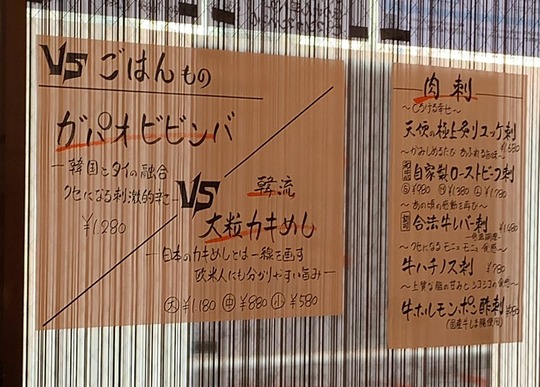 VS ごはんもの
ガパオビビンバ
韓国とタイの融合
クセになる刺激的辛さ
¥1,280
VS
韓流
大粒カキめし
日本のカキめしとは一線を画す
欧米人にも分かりやすい旨み
大 ¥1,180 中 ¥880 小 ¥580
肉刺
〜とろける幸せ〜
天使の極上炙りユッケ刺
〜かみしめるたびあふれる旨味〜
自家製ローストビーフ刺
¥980 ¥1,380 ¥1,780
〜あの頃の感動を再び〜
合法牛レバー刺
〜クセになるモニュモニュ食感〜
牛ハチノス刺
¥780
〜上質な脂の甘みとコリコリの食感〜
牛ホルモンポン酢刺